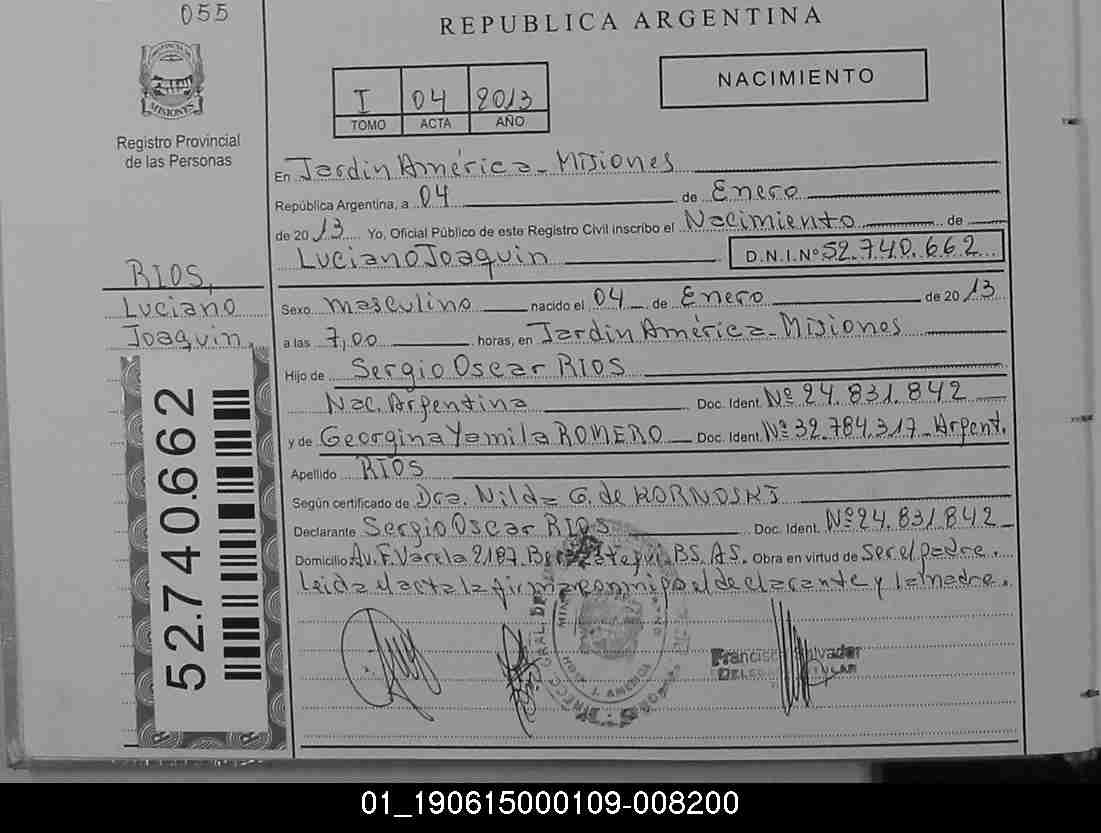 055
REPUBLICA ARGENTINA
NACIMIENTO
I 04 2013
TOMO ACTA AÑO
MISIONES
Registro Provincial
de las Personas
En Jardin América - Misiones
República Argentina, a 04 de Enero
de 2013 Yo, Oficial Público de este Registro Civil inscribo el Nacimiento de
Luciano Joaquin D.N.I.Nº 52.740.662
RIOS,
Luciano
Joaquin.
Sexo masculino nacido el 04 de Enero de 2013
a las 7,00 horas, en Jardin América - Misiones
Hijo de Sergio Oscar RIOS
Nac. Argentina Doc. Ident. Nº 24.831.842
y de Georgina Yamila ROMERO Doc. Ident. Nº 32.784.317 - Argent.
Apellido RIOS
Según certificado de Dra. Nilda G. de KORNOSKI
Declarante Sergio Oscar RIOS Doc. Ident. Nº 24.831.842
Domicilio Av. F. Varela 2187. Berazategui. BS. AS. Obra en virtud de Ser el padre.
Leida el acta la firman conmigo el declarante y la madre.
52.740.662
Francisco Salvador
01_190615000109-008200